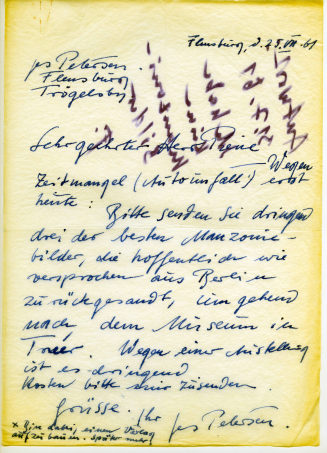 Flensburg, d. 25. VII. 61
Jes Petersen.
Flensburg
Trögelsby
Sehr geehrter Herr
Wegen
Zeitmangel (Autounfall!) erst
heute: Bitte senden Sie dringend
drei der besten Manzoni-
bilder, die hoffentlich wie
versprochen aus Berlin
zurückgesandt, umgehend
nach dem Museum in
Trier. Wegen einer Austellung
ist es dringend
Kosten bitte mir zusenden.
Grüsse. Ihr Jes Petersen.
x Bin dabei, einen Verlag
aufzubauen. später mehr!